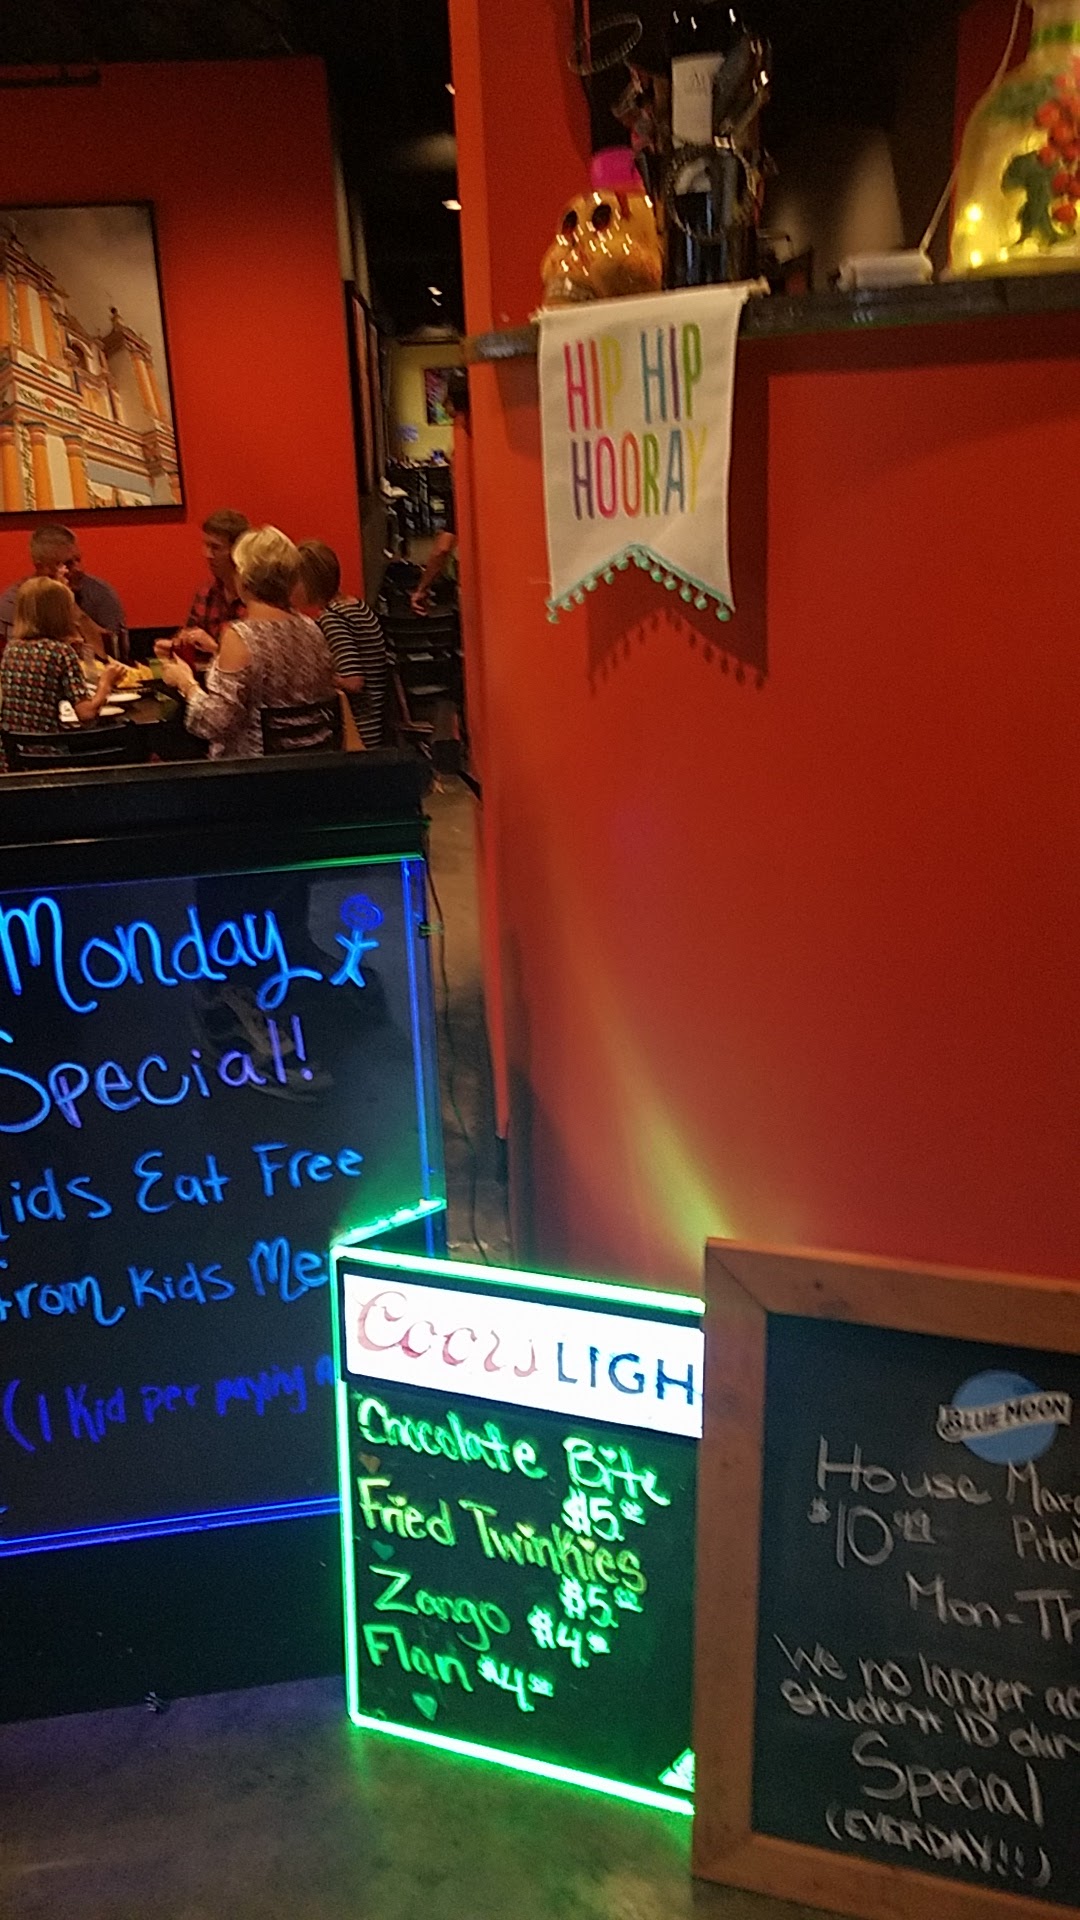 HIP HIP
HOORAY
Monday
Special!
ids Eat Free
from Kids Me
(1 Kid per paying a
Coors LIGH
Chocolate Bite
$5.00
Fried Twinkies
$5.00
Zango $4.00
Flan $4.00
BLUE MOON
House Marg
$10.99 Pitc
Mon-Th
We no longer ac
student ID dur
Special
(EVERDAY!!!)